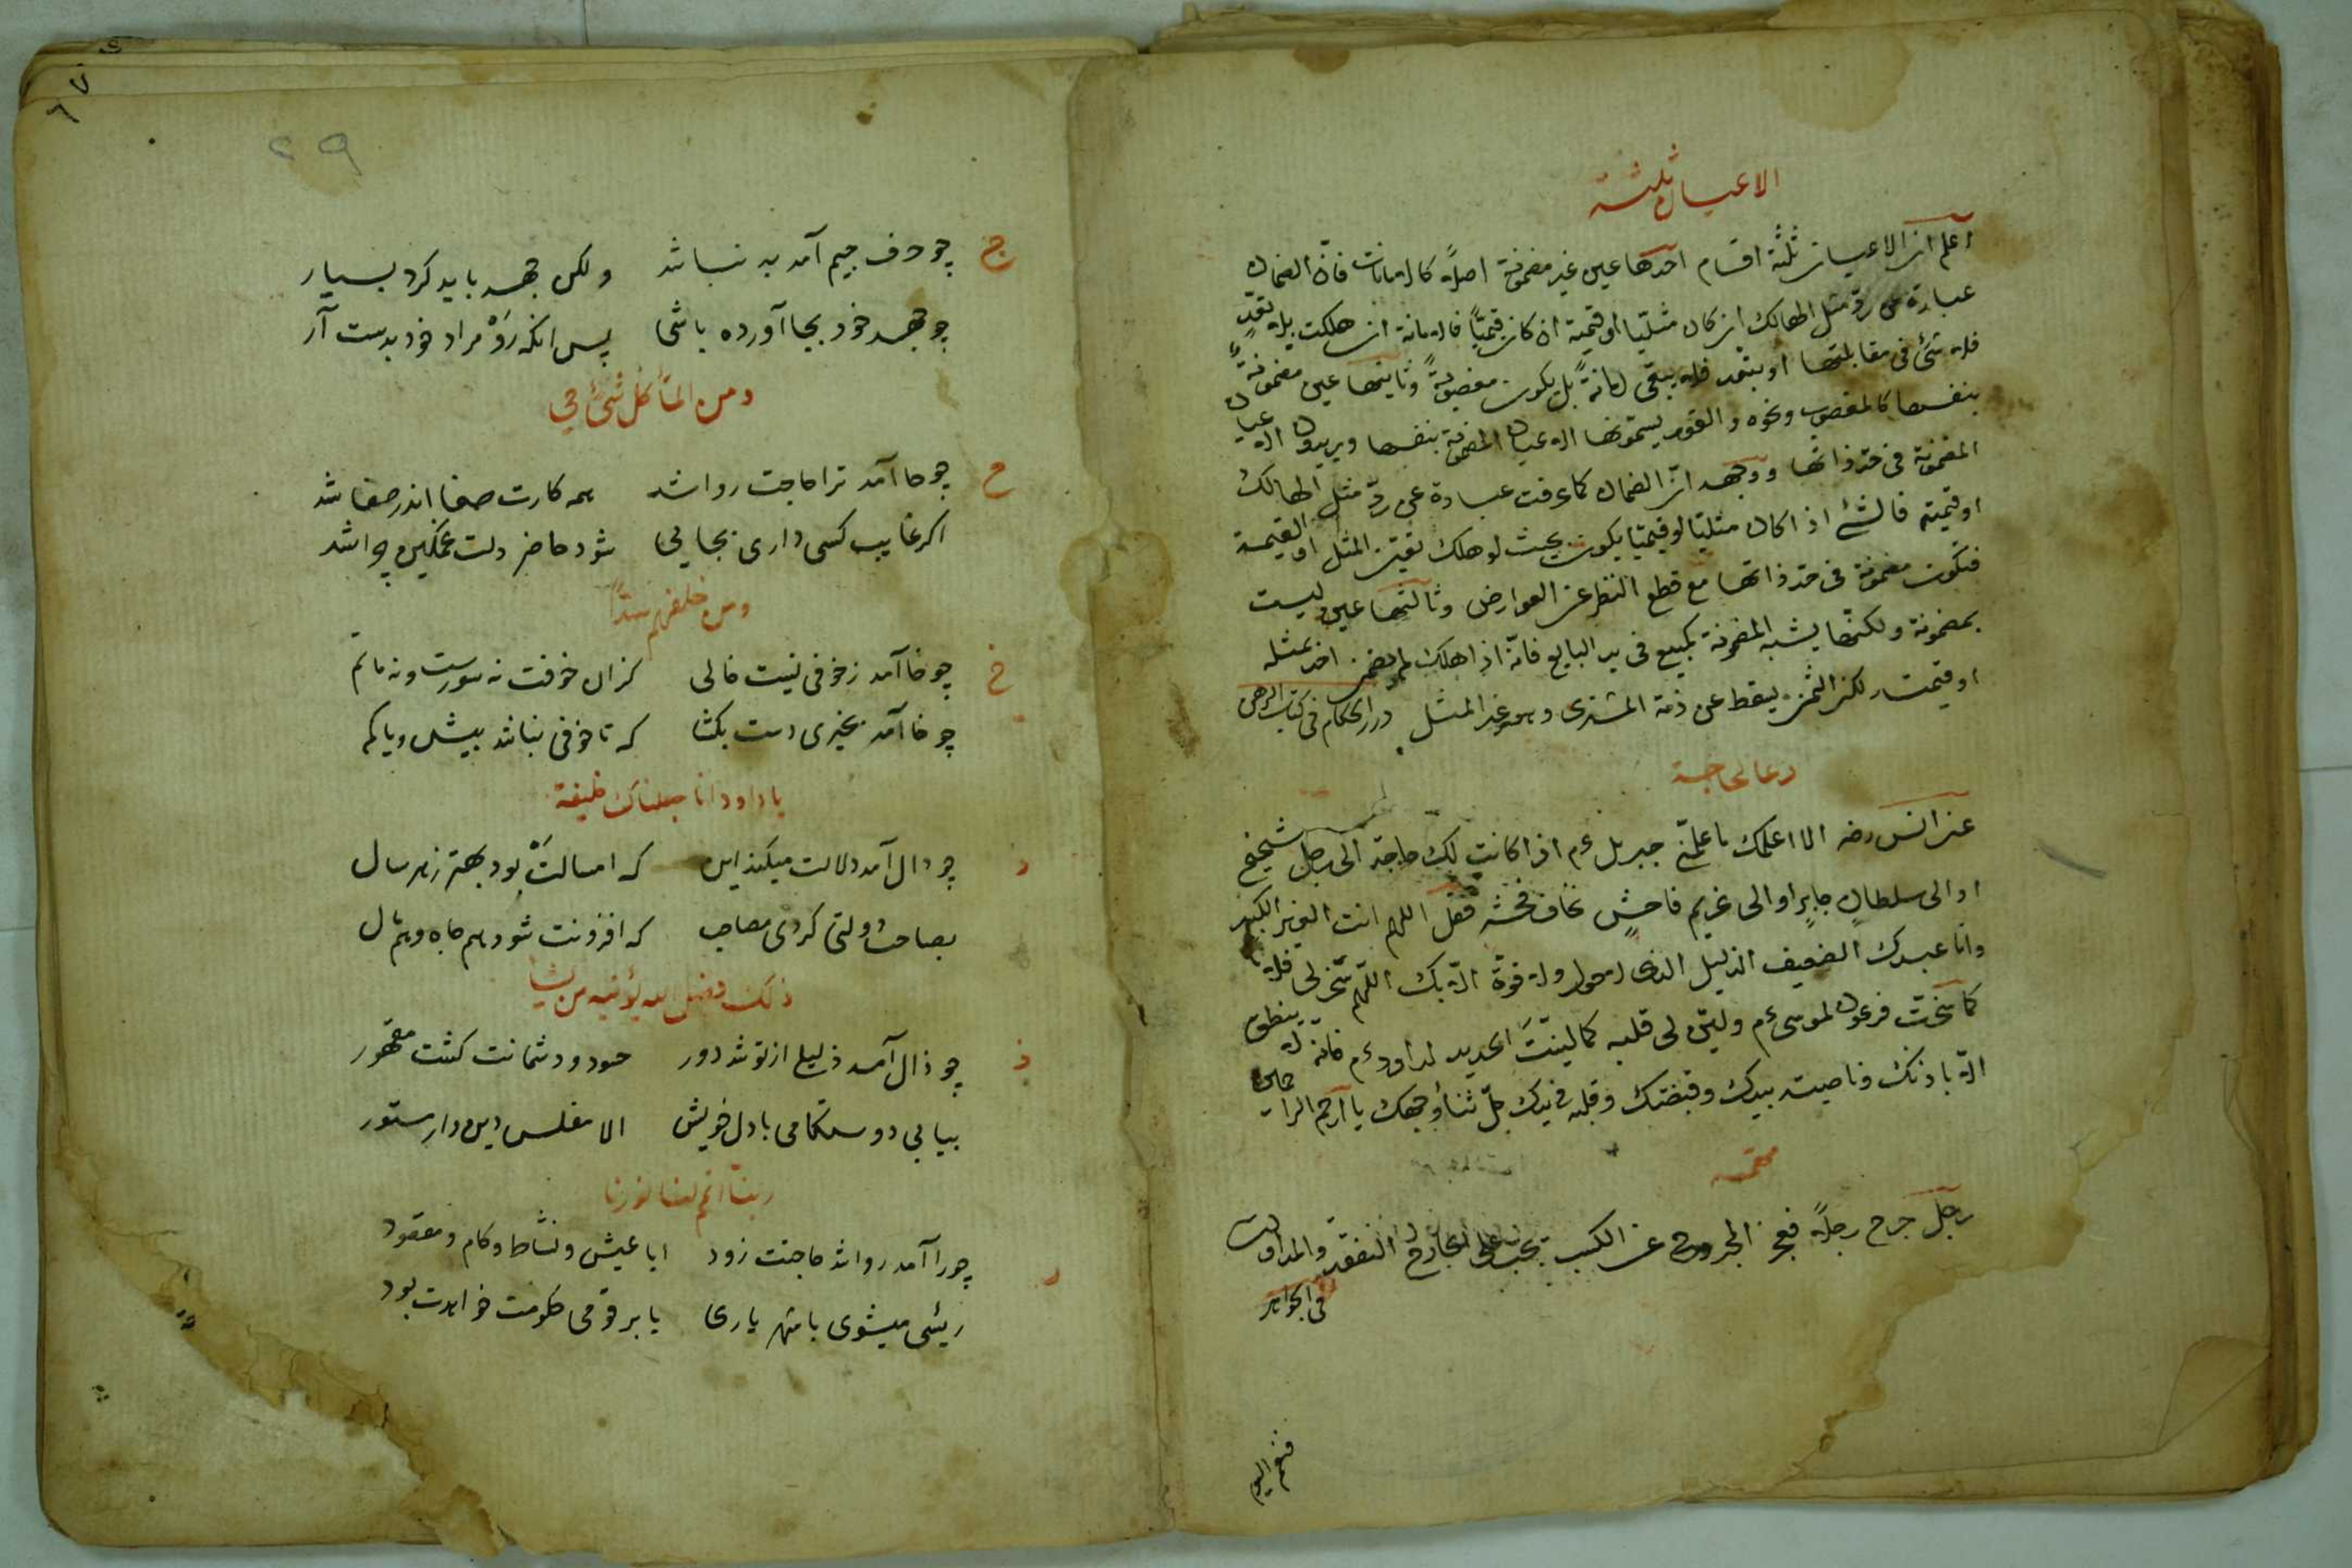 الاعيان ثلثة
اعلم ان الاعيان ثلثة اقسام احدها عين غير مضمونة اصلاً كالامانات فانّ الضمان
عبارة عن ردّ مثل الهالك ان كان مثليّا او قيمته ان كان قيميّاً فالامانة ان هلكت بلا تعدٍّ
فلا شئ فى مقابلتها او بتعد فلا يبقى امانةً بل يكون مغصوبةً وثانيتها عين مضمونةٌ
بنفسها كالمغصوب ونحوه والقوم يسمّونها الاعيان المضمونة بنفسها ويريدون الاعيان
المضمونة فى حدّ ذاتها ووجهه انّ الضمان كما عرفت عبارة عن ردّ مثل الهالك
او قيمته فالشئ اذا كان مثليّا او قيميّا يكون بحيث لو هلك تعيّن المثل او القيمة
فتكون مضمونة فى حدّ ذاتها مع قطع النظر عن العوارض وثالثتها عين ليست
بمضمونة ولكنّها يشبه المضمونة كمبيع فى يد البايع فانّه اذا هلك لم يضمن احد بمثله
او قيمته لكن الثمن يسقط عن ذمة المشترى وهو غير المثل درر الحكام فى كتاب الرهن
دعا لحاجة
عن انس رضه الا اعلمك ما علّمنى جبريل ءم اذا كانت لك حاجة الى رجل شحيح
او الى سلطانٍ جايرٍ او الى غريم فاحشٍ تخاف فحشه فقل اللهم انت العزيز الكبير
وانا عبدك الضعيف الذليل الذى لا حول ولا قوّة الا بك اللّهم سخّر لى فلانا
كما سخّرت فرعون لموسى ءم وليّن لى قلبه كما ليّنتَ الحديد لداود ءم فانّه لا ينطق
الا باذنك وناصيته بيدك وقبضتك وقلبه فى يدك جلّ ثناؤ وجهك يا ارحم الراحمين
رجل جرح رجلاً فعجز المجروح عن الكسب تجب على الجارح النفقة والمداواة
فى الجواهر
فثم اليوم
٦٧
٢٩
ج چو حرف جيم آمد بد نباشد ولكن جهد بايد كرد بسيار
چو جهد خود بجا آورده باشى پس انكه رَوْ مراد خود بدست آر
ومن المآ كل شئ حي
ح چو حا آمد ترا حاجت روا شد همه كارت صفا اندر صفا شد
اكر غايب كسى دارى بجايى شود حاضر دلت غمكين چرا شد
ومن خلفهم سدّاً
خ چو خا آمد ز خوفى نيست خالى كزان خوفت نه سورست ونه ماتم
چو خا آمد بخيرى دست بكشا كه تا خوفى نباشد بيش ويا كم
يا داود انا جعلناك خليفة
د چو دال آمد دلالت ميكند اين كه امسالتْ بود بهتر ز هر سال
بصاحب دولتى كردى مصاحب كه افزونت شود هم جاه وهم مال
ذلك فضل الله يؤتيه من يشآ
ذ چو ذال آمد ذليلى از تو شد دور حسود ودشمانت كشت مقهور
بيابى دوستكامى با دل خويش الا مفلس دين دار مستور
ربنا اتمم لنا نورنا
ر چو را آمد روا شد حاجتت زود ابا عيش ونشاط وكام ومقصود
رئيسى ميشوى يا شهريارى يا بر قومى حكومت خواهدت بود